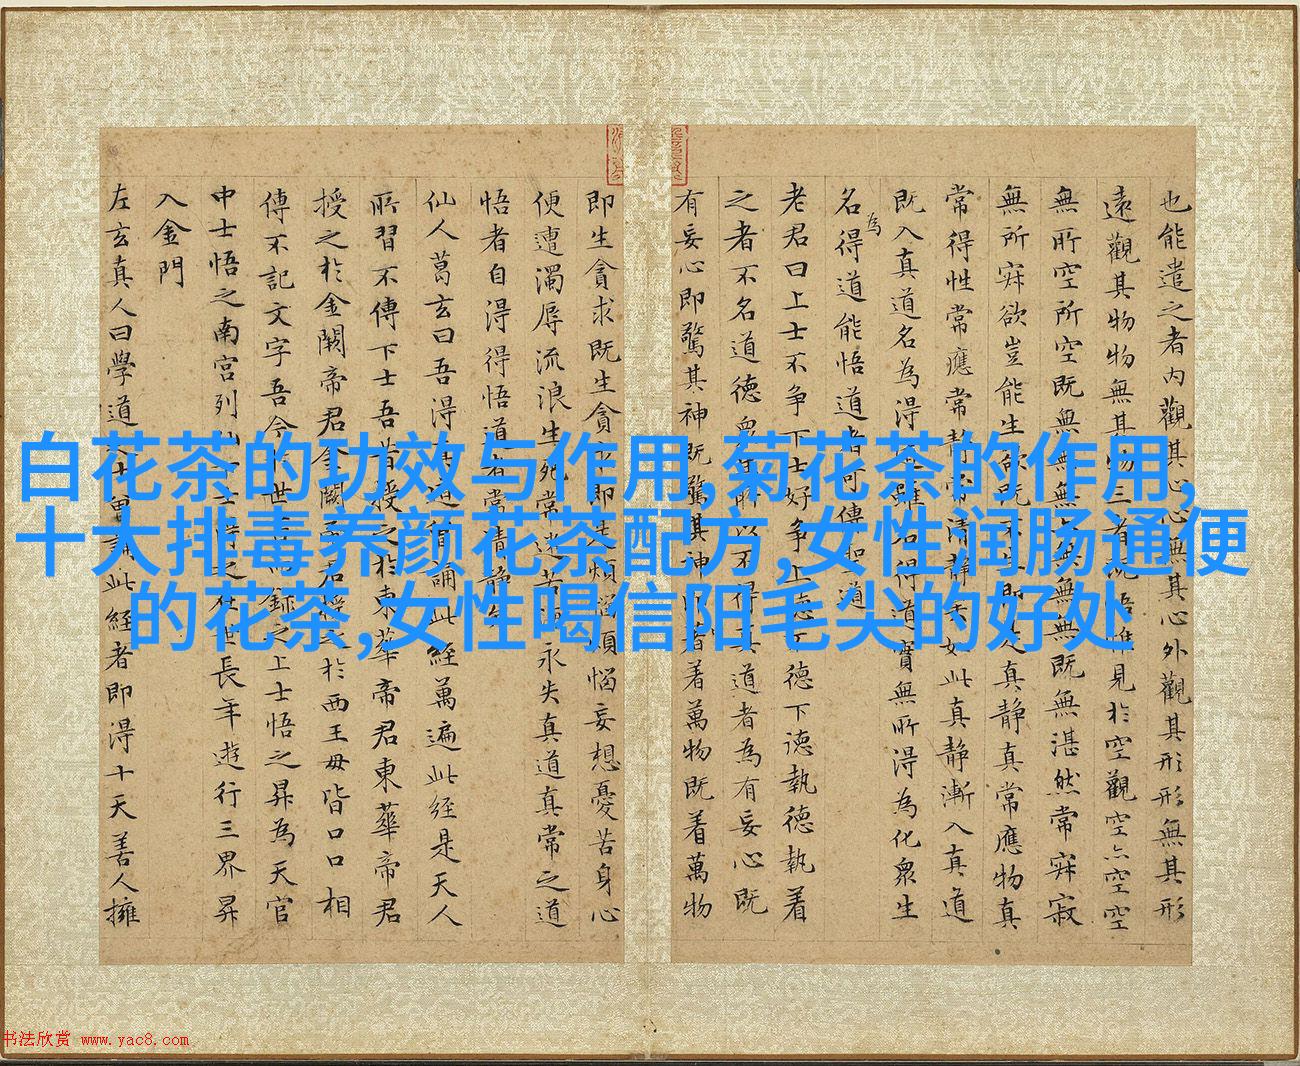 也能遣之者內觀其心心無其心外觀其形形無其形
遠觀其物物無其物三者既悟唯見於空觀空亦空空
無所空所空既無無無亦無無無既無湛然常寂寂
無所寂欲豈能生欲既不生即是真靜真常應物真
常得性常應常靜常清靜矣如此真靜漸入真道
既入真道名為得道雖名得道實無所得為化衆生
名為得道能悟道者可傳聖道
老君曰上士不争下士好争上德不德下德執德執着
之者不名道德衆生所以不得真道者為有妄心既
有妄心即驚其神既驚其神即着萬物既着萬物
即生貪求既生貪求即是煩惱煩惱妄想憂苦身心
便遭濁辱流浪生死常沉苦海永失真道真常之道
悟者自得得悟道者常清靜矣
仙人葛玄曰吾得真道曾誦此經萬遍此經是天人
所習不傳下士吾昔授之於東華帝君東華帝君
授之於金闕帝君金闕帝君授之於西王母皆口口相
傳不記文字吾今於世書而錄之上士悟之昇為天官
中士悟之南宮列仙下士得之在世長年遊行三界昇
入金門
左玄真人曰學道之士曾誦此經者即得十天善人擁
白花茶的功效与作用,菊花茶的作用,
十大排毒养颜花茶配方,女性润肠通便
的花茶,女性喝信阳毛尖的好处
书法欣赏 www.yac8.com